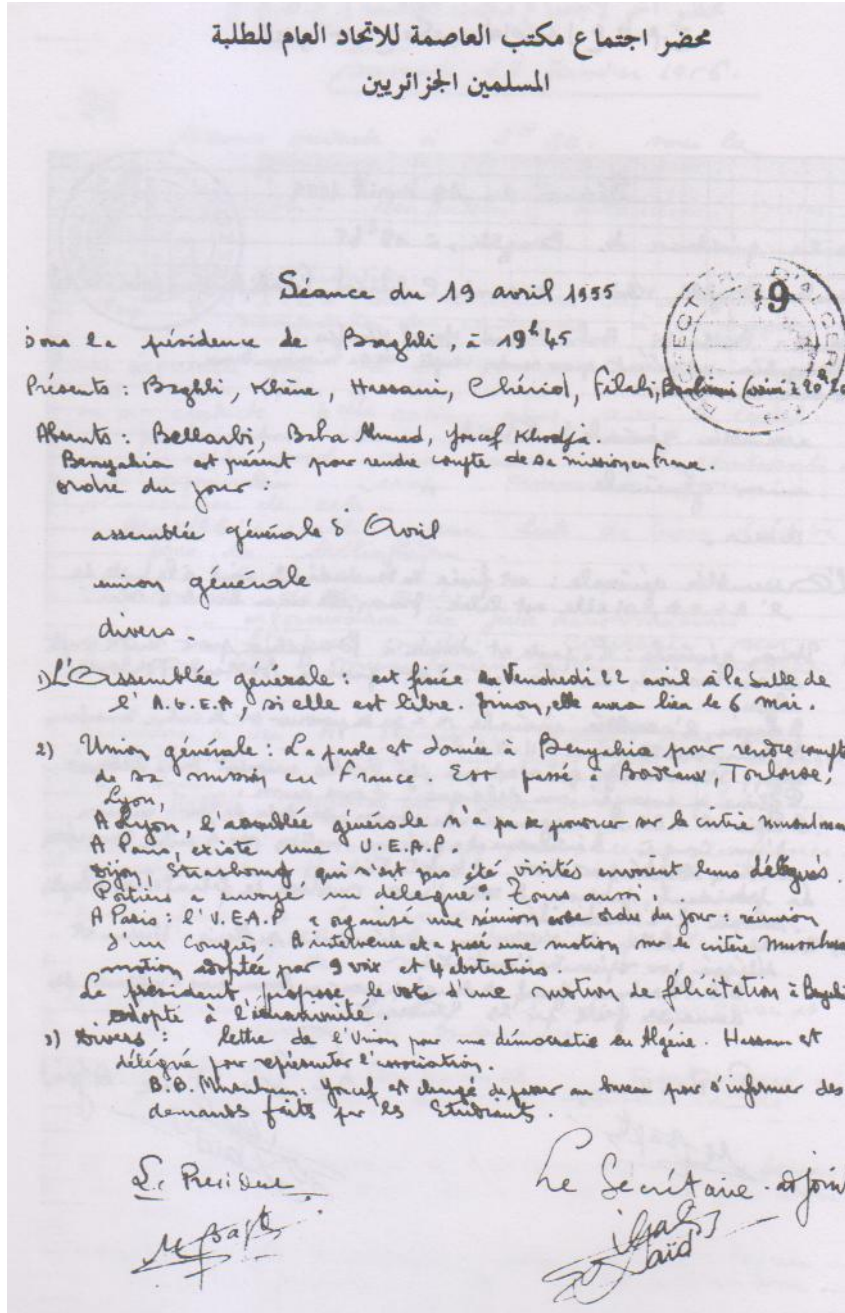 محضر اجتماع مكتب العاصمة للاتحاد العام للطلبة
المسلمين الجزائريين
Séance du 19 avril 1955
9
Sous la présidence de Baghli, à 19h45
Présents : Baghli, Khène, Hassani, Chérid, Filali, (arrivé à 20h20
Absents : Bellarbi, Baba Ahmed, Youcef Khodja.
Benyahia est présent pour rendre compte de sa mission en France.
ordre du jour :
assemblée générale 5 Avril
union générale
divers.
1) L'Assemblée générale : est fixée au Vendredi 22 avril à la Salle de
l'A.G.E.A, si elle est libre. sinon, elle aura lieu le 6 mai.
2) Union générale : La parole est donnée à Benyahia pour rendre compte
de sa mission en France. Est passé à Bordeaux, Toulouse,
Lyon,
A Lyon, l'assemblée générale n'a pu se prononcer sur le critère musulman
A Paris, existe une U.E.A.P.
Dijon, Strasbourg qui n'est pas été visités envoient leurs délégués.
Poitiers a envoyé un délégué. Tours aussi.
A Paris : l'U.E.A.P a organisé une réunion avec ordre du jour : réunion
d'un Congrès. B. intervenu et a posé une motion sur le critère musulman
motion adoptée par 9 voix et 4 abstentions
Le président propose le vote d'une motion de félicitation à
adopté à l'unanimité.
3) Divers : lettre de l'Union pour une démocratie en Algérie. Hassani est
délégué pour représenter l'association.
B.B. Musulman : Youcef est chargé de passer au bureau pour s'informer des
demandes faites par les Etudiants.
Le President
Le Secrétaire adjoint